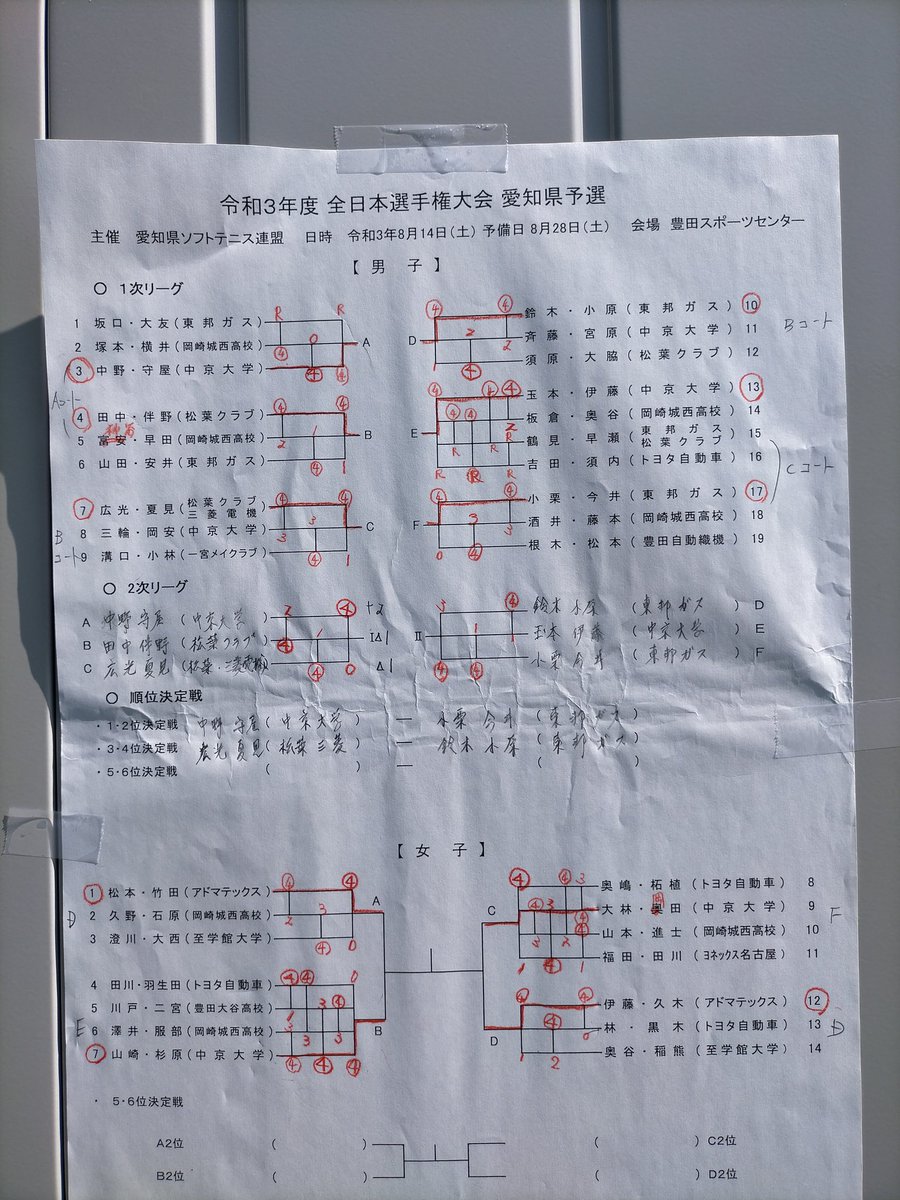 令和3年度 全日本選手権大会 愛知県予選
主催 愛知県ソフトテニス連盟 日時 令和3年8月14日(土) 予備日 8月28日(土) 会場 豊田スポーツセンター
【 男 子 】
○ 1次リーグ
1 坂口・大友 (東邦ガス)
2 塚本・横井 (岡崎城西高校)
3 中野・守屋 (中京大学)
A
Aコート
4 田中・伴野 (松葉クラブ)
5 富安・早田 (岡崎城西高校)
6 山田・安井 (東邦ガス)
B
7 広光・夏見 (松葉クラブ 三菱電機)
8 三輪・岡安 (中京大学)
9 溝口・小林 (一宮メイクラブ)
C
Bコート
鈴木・小原 (東邦ガス) 10
斉藤・宮原 (中京大学) 11
須原・大脇 (松葉クラブ) 12
D
Bコート
玉本・伊藤 (中京大学) 13
板倉・奥谷 (岡崎城西高校) 14
鶴見・早瀬 (東邦ガス 松葉クラブ) 15
吉田・須内 (トヨタ自動車) 16
E
Cコート
小栗・今井 (東邦ガス) 17
酒井・藤本 (岡崎城西高校) 18
根木・松本 (豊田自動織機) 19
F
○ 2次リーグ
A 中野 守屋 (中京大学)
B 田中 伴野 (松葉クラブ)
C 広光 夏見 (松葉・三菱電機)
I
II
鈴木 小原 (東邦ガス) D
玉本 伊藤 (中京大学) E
小栗 今井 (東邦ガス) F
○ 順位決定戦
・1・2位決定戦 中野 守屋 (中京大学) ― 小栗 今井 (東邦ガス)
・3・4位決定戦 広光 夏見 (松葉 三菱) ― 鈴木 小原 (東邦ガス)
・5・6位決定戦 ( ) ― ( )
【 女 子 】
1 松本・竹田 (アドマテックス)
2 久野・石原 (岡崎城西高校)
3 澄川・大西 (至学館大学)
A
D
4 田川・羽生田 (トヨタ自動車)
5 川戸・二宮 (豊田大谷高校)
6 澤井・服部 (岡崎城西高校)
7 山崎・杉原 (中京大学)
B
E
奥嶋・柘植 (トヨタ自動車) 8
大林・奥田 (中京大学) 9
山本・進士 (岡崎城西高校) 10
福田・田川 (ヨネックス名古屋) 11
C
F
伊藤・久木 (アドマテックス) 12
林・黒木 (トヨタ自動車) 13
奥谷・稲熊 (至学館大学) 14
D
D
・ 5・6位決定戦
A2位 ( ) ( ) C2位
B2位 ( ) ( ) D2位